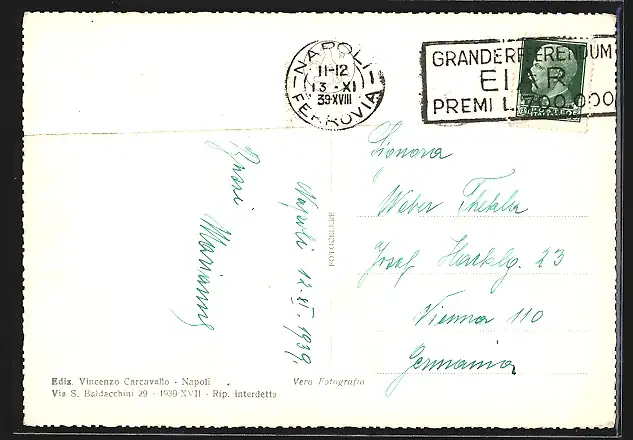 NAPOLI
11-12
13 · XI
39·XVIII
FERROVIA
GRANDE REFERENDUM
EIAR
PREMI L.
Signora
Weber Thekla
Josef
23
Vienna 110
Germania
Napoli 12. XI. 1939.
FOTOCELERE
Ediz. Vincenzo Carcavallo - Napoli
Via S. Baldacchini 29 - 1939-XVII - Rip. interdetta
Vera Fotografia